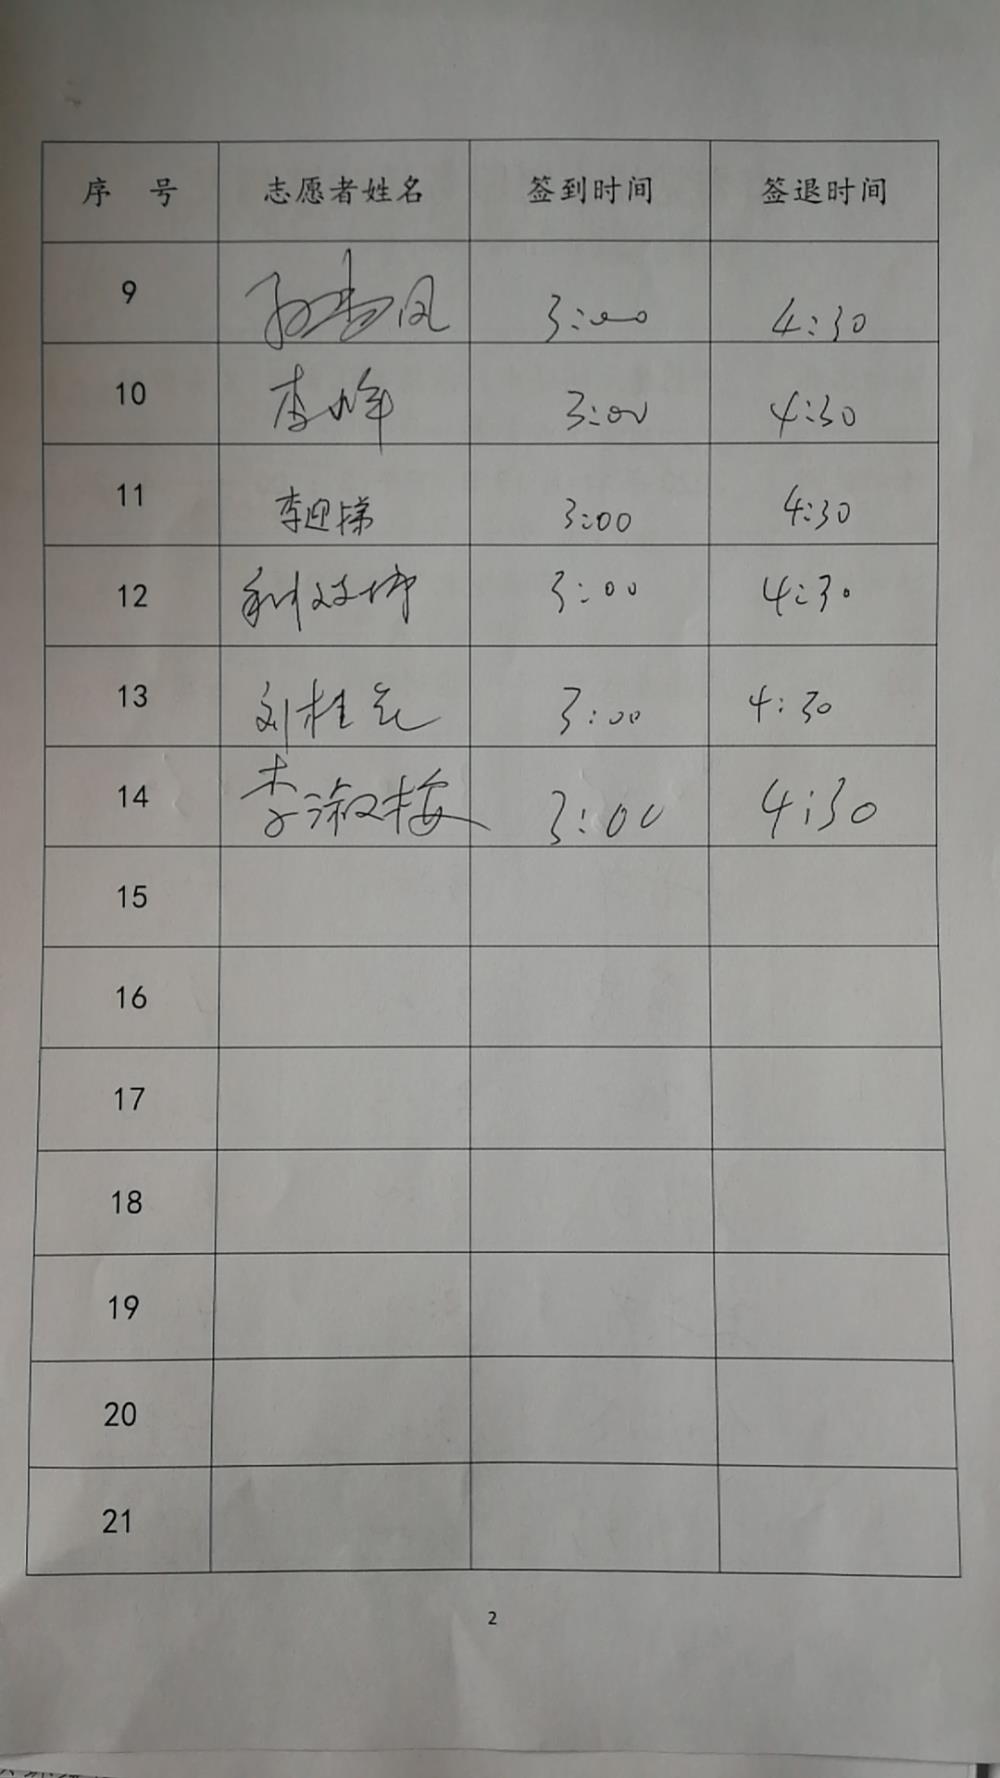 序 号 志愿者姓名 签到时间 签退时间
9 孙书凤 3:00 4:30
10 李峰 3:00 4:30
11 李迎娣 3:00 4:30
12 3:00 4:30
13 刘桂花 3:00 4:30
14 李淑梅 3:00 4:30
15
16
17
18
19
20
21
2